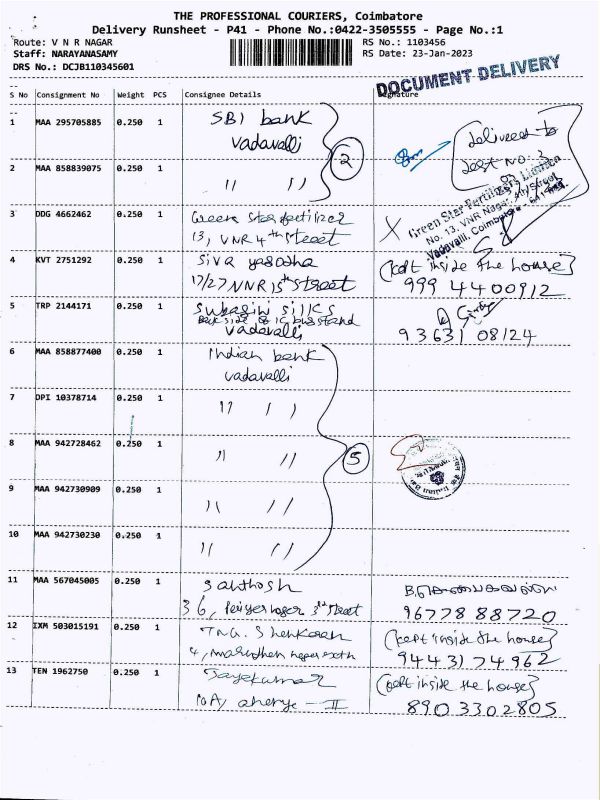 THE PROFESSIONAL COURIERS, Coimbatore
Delivery Runsheet - P41 - Phone No.:0422-3505555 - Page No.:1
Route: V N R NAGAR
RS No.: 1103456
Staff: NARAYANASAMY
RS Date: 23-Jan-2023
DRS No.: DCJB110345601
DOCUMENT DELIVERY
S No Consignment No Weight PCS Consignee Details Signature
1 MAA 295705885 0.250 1 SBI bank
vadavalli
2
Delivered to
2 MAA 858839075 0.250 1 " "
Green Star Fertilizers Limited
No. 13, VNR Nagar,
Vadavalli, Coimbatore
3 DDG 4662462 0.250 1 Green Star fertilizer
13, VNR 4th street
X
4 KVT 2751292 0.250 1 Siva yasodha
17/27 VNR 15th street
(kept inside the house)
999 4400912
5 TRP 2144171 0.250 1 Subasini silks
Back side busstand
vadavalli
93631 08124
6 MAA 858877400 0.250 1 Indian bank
vadavalli
7 DPI 10378714 0.250 1 " "
8 MAA 942728462 0.250 1 " "
5
9 MAA 942730909 0.250 1 " "
10 MAA 942730230 0.250 1 " "
11 MAA 567045005 0.250 1 Santhosh
36, Periyar nagar 3rd street
96778 88720
12 IXM 503015191 0.250 1 T.N.G. Shenkaran
4,
(kept inside the house)
94431 74962
13 TEN 1962750 0.250 1 Jayakumar
10A,
(kept inside the house)
8903302805